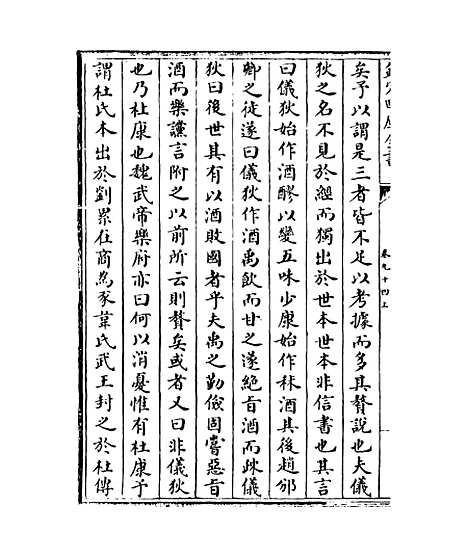 欽定四庫全書
卷九十四上
矣予以謂是三者皆不足以考據而多其贅說也夫儀
狄之名不見於經而獨出於世本世本非信書也其言
曰儀狄始作酒醪以變五味少康始作秫酒其後趙邠
卿之徒遂曰儀狄作酒禹飲而甘之遂絕旨酒而疎儀
狄曰後世其有以酒敗國者乎夫禹之勤儉固嘗惡旨
酒而樂讜言附之以前所云則贅矣或者又曰非儀狄
也乃杜康也魏武帝樂府亦曰何以消憂惟有杜康予
謂杜氏本出於劉累在商為豕韋氏武王封之於杜傳